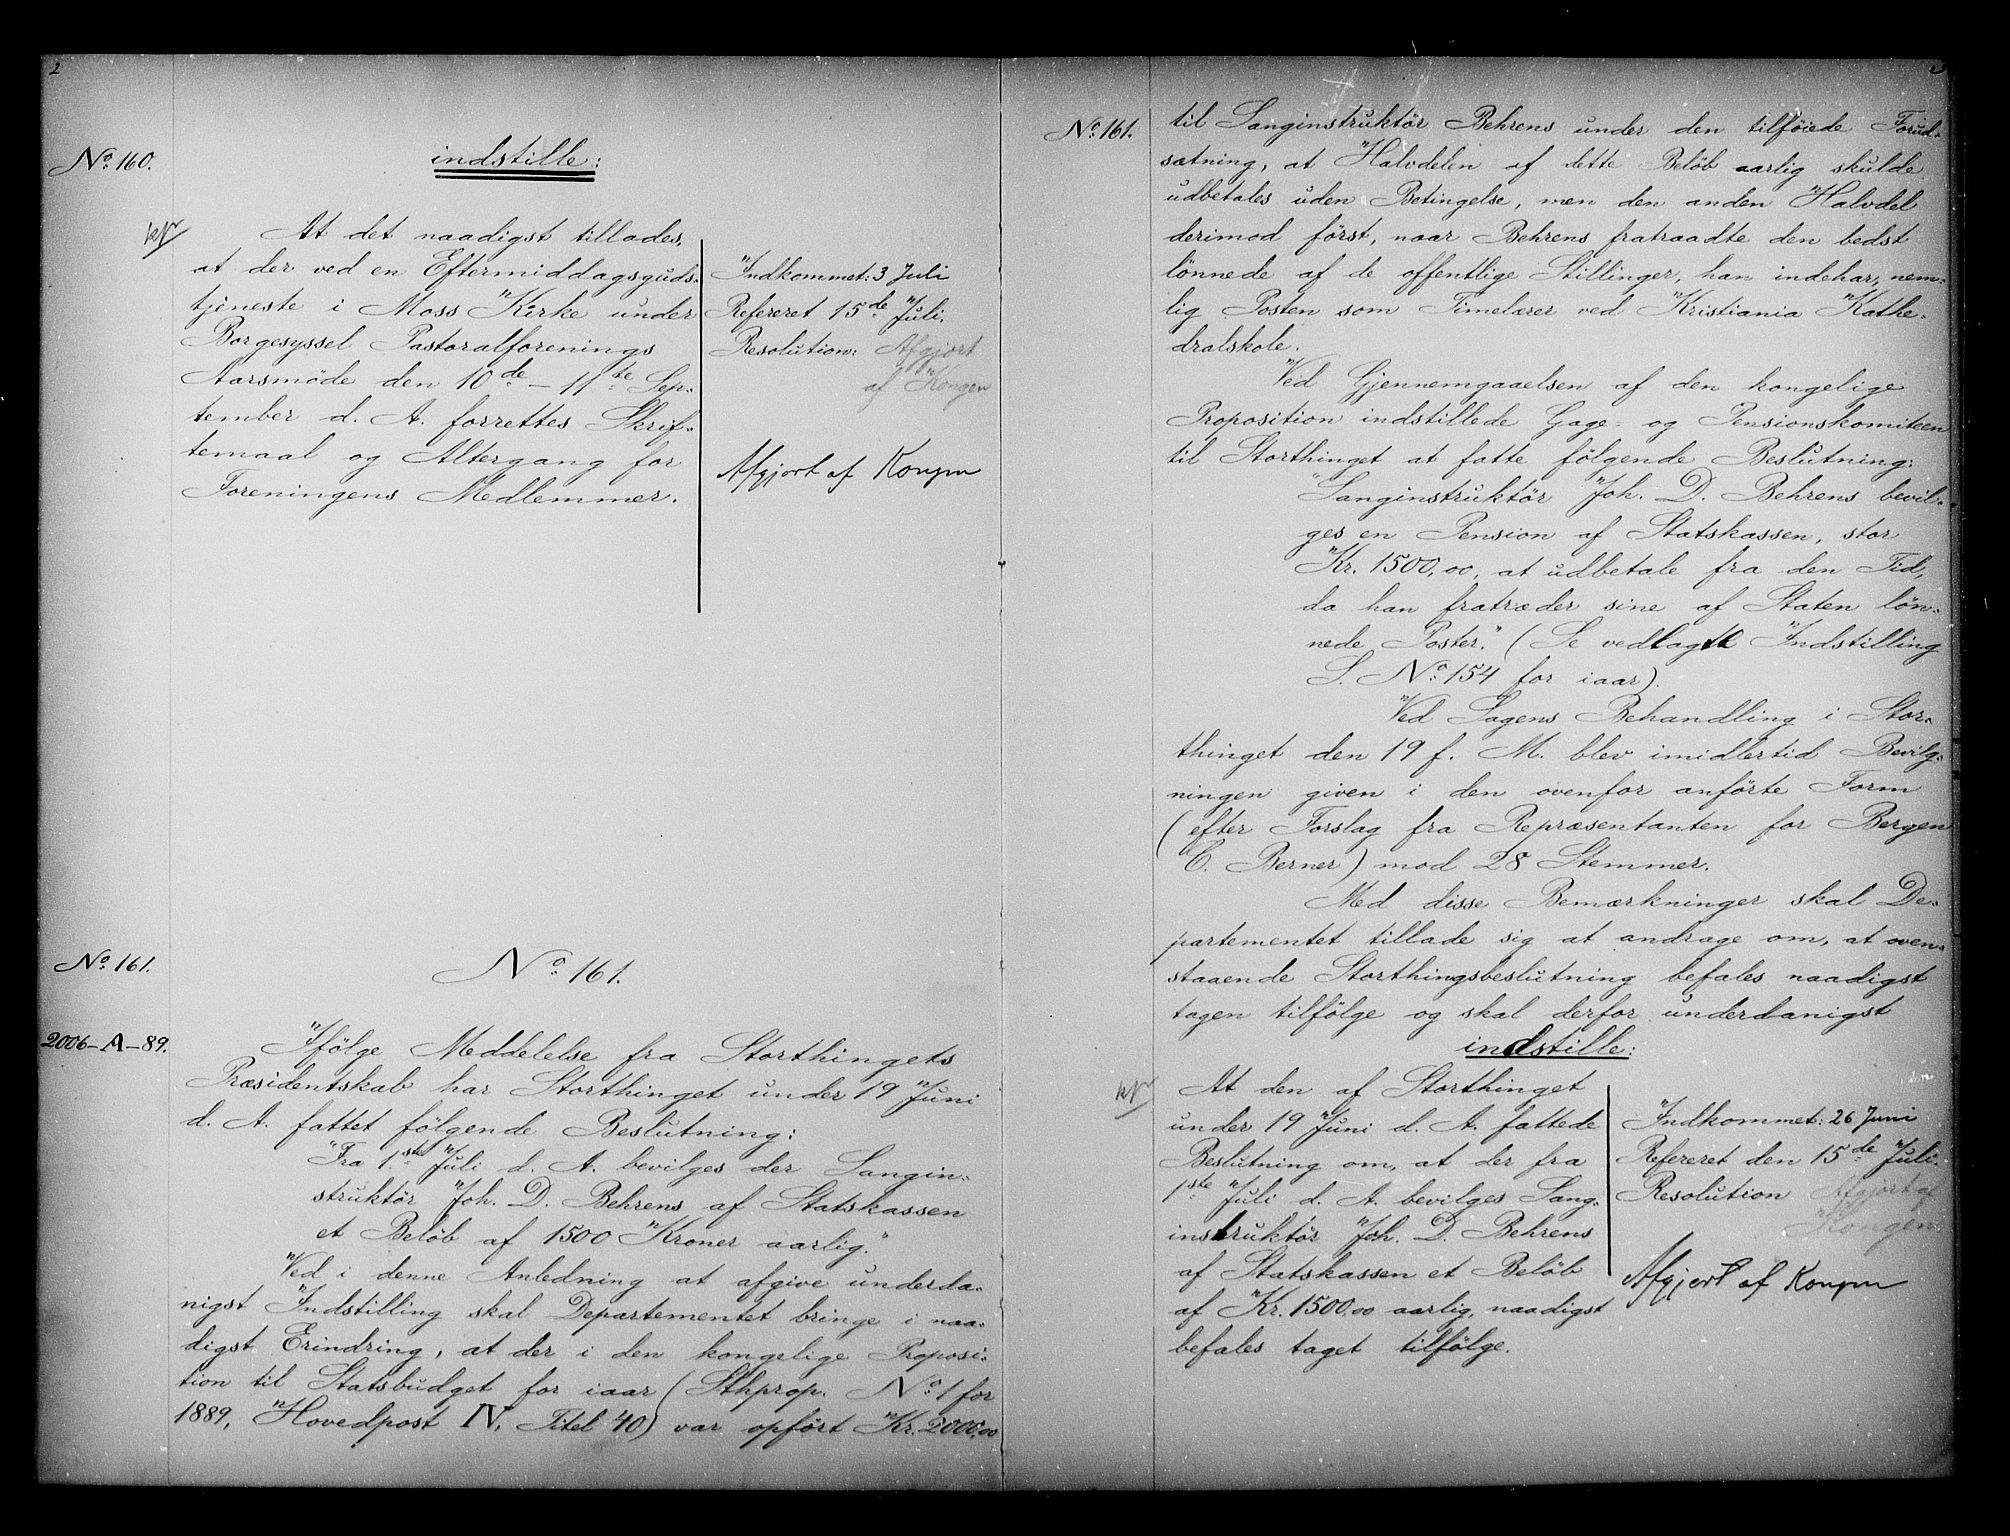 2
No. 160.
indstille:
At det naadigst tillades,
at der ved en Eftermiddagsguds-
tjeneste i Moss Kirke under
Borgesyssel Pastoralforenings
Aarsmöde den 10de – 11te Sep-
tember d. A. forrettes Skrif-
temaal og Altergang for
Foreningens Medlemmer.
Indkommet: 3 Juli
Refereret 15de Juli.
Resolution: Afgjort
af Kongen
Afgjort af Kongen
No. 161.
No. 161.
2006–A–89.
Ifölge Meddelelse fra Storthingets
Præsidentskab har Storthinget under 19 Juni
d. A. fattet fölgende Beslutning:
"Fra 1ste Juli d. A. bevilges der Sangin-
struktör Joh. D. Behrens af Statskassen
et Belöb af 1500 Kroner aarlig."
Ved i denne Anledning at afgive underda-
nigst Indstilling skal Departementet bringe i naa-
digst Erindring, at der i den kongelige Proposi-
tion til Statsbudget for iaar (Sthprop. No. 1 for
1889, Hovedpost IV, Titel 40) var opfört Kr. 2000,00
No. 161.
til Sanginstruktör Behrens under den tilföiede Forud-
sætning, at Halvdelen af dette Belöb aarlig skulde
udbetales uden Betingelse, men den anden Halvdel
derimod först, naar Behrens fratraadte den bedst
lönnede af de offentlige Stillinger, han indehar, nem-
lig Posten som Timelærer ved Kristiania Kathe-
dralskole.
Ved Gjennemgaaelsen af den kongelige
Proposition indstillede Gage- og Pensionskomiteen
til Storthinget at fatte fölgende Beslutning:
"Sanginstruktör Joh. D. Behrens bevil-
ges en Pension af Statskassen, stor
Kr. 1500,00, at udbetale fra den Tid,
da han fratræder sine af Staten lön-
nede Poster." (Se vedlagte Indstilling
S. No. 154 for iaar).
Ved Sagens Behandling i Stor-
thinget den 19 f. M. blev imidlertid Bevilg-
ningen given i den ovenfor anförte Form
(efter Forslag fra Repræsentanten for Bergen
C. Berner) mod 28 Stemmer.
Med disse Bemærkninger skal De-
partementet tillade sig at andrage om, at oven-
staaende Storthingsbeslutning befales naadigst
tagen tilfölge og skal derfor underdanigst
indstille:
At den af Storthinget
under 19 Juni d. A. fattede
Beslutning om, at der fra
1ste Juli d. A. bevilges Sang-
instruktör Joh. D. Behrens
af Statskassen et Belöb
af Kr. 1500,00 aarlig, naadigst
befales taget tilfölge.
Indkommet: 26 Juni
Refereret den 15de Juli.
Resolution Afgjort af
Kongen.
Afgjort af Kongen